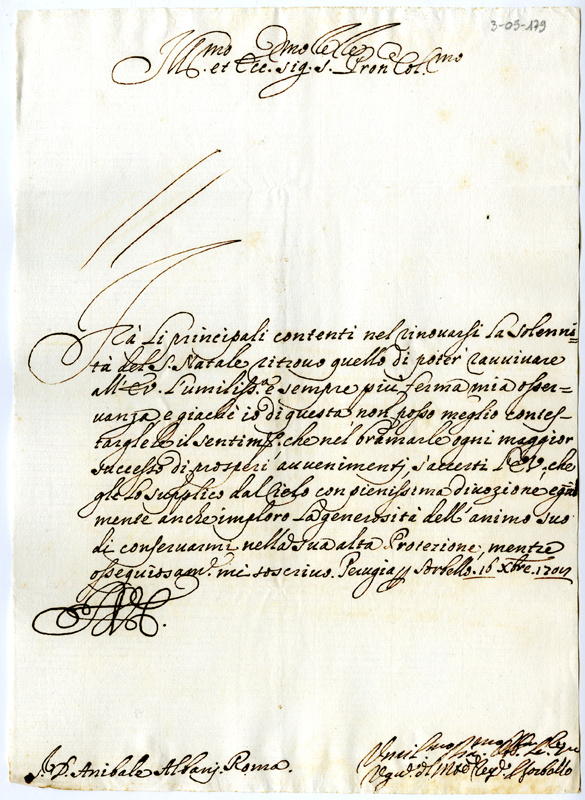 3-05-179
Ill.mo et Ecc. sig. s. Pron Col.mo
Trà Li principali contenti nel rinovarsi La Solenni=
tà del S. Natale ritrovo quello di poter ravvivare
all'Ev. L'umiliss.a e sempre più ferma mia osser=
vanza e giache io di questa non posso meglio contes=
targlele il sentim.to che nel bramarle ogni maggior
successo di prosperi avvenimenti, s'accerti l'EV. che
glelo supplico dal Cielo con pienissima divozione, egual
mente anche imploro La generosità dell'animo suo
di conservarmi nella sua alta Protezione, mentre
ossequiosam.e mi soscrivo. Perugia p Sorbello. 16 Xbre. 1707
D. Anibale Albani. Roma.
Sorbello